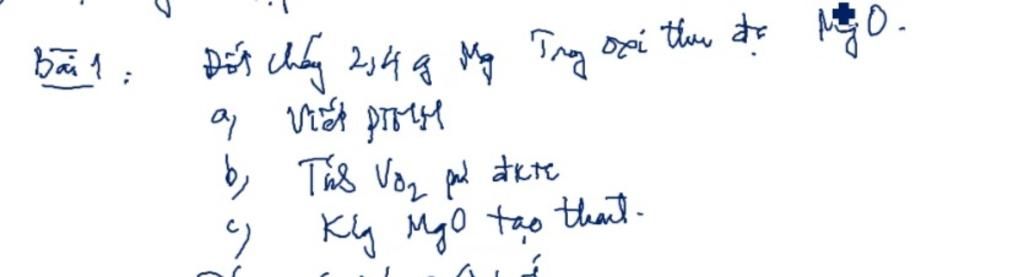 Bài 1: Đốt cháy 2,4 g Mg Trg oxi thu đc MgO.
a, Viết PTHH
b, Tính VO2 pứ đktc
c, Klg MgO tạo thành.